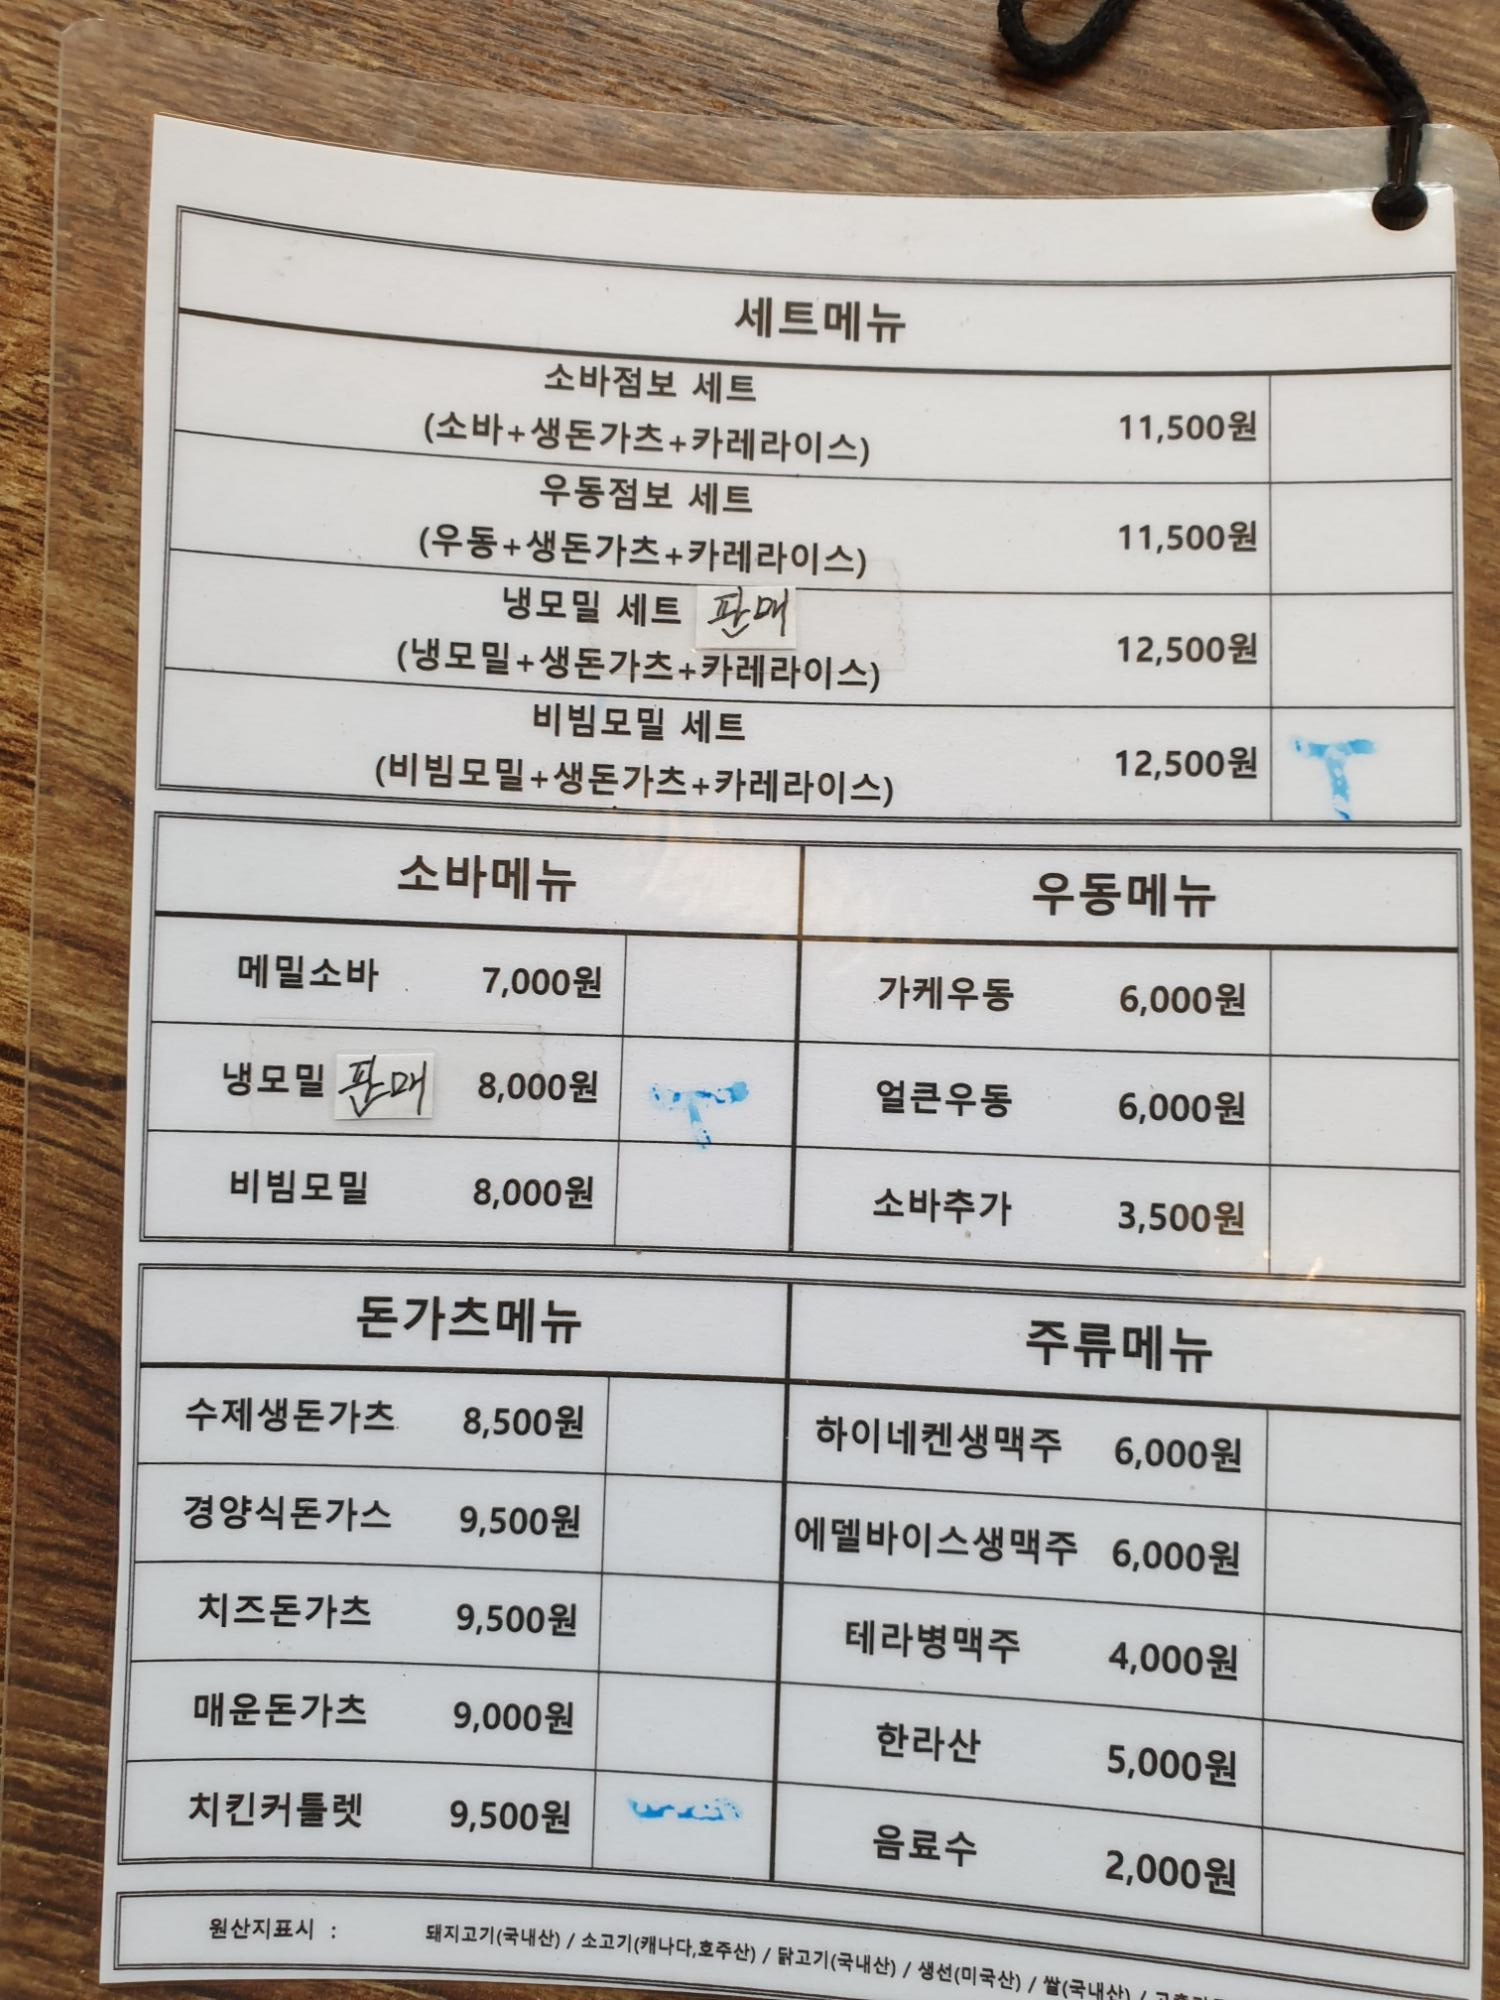 세트메뉴
소바점보 세트
(소바+생돈가츠+카레라이스) 11,500원
우동점보 세트
(우동+생돈가츠+카레라이스) 11,500원
냉모밀 세트 판매
(냉모밀+생돈가츠+카레라이스) 12,500원
비빔모밀 세트
(비빔모밀+생돈가츠+카레라이스) 12,500원 T
소바메뉴
메밀소바 7,000원
냉모밀 판매 8,000원 T
비빔모밀 8,000원
우동메뉴
가케우동 6,000원
얼큰우동 6,000원
소바추가 3,500원
돈가츠메뉴
수제생돈가츠 8,500원
경양식돈가스 9,500원
치즈돈가츠 9,500원
매운돈가츠 9,000원
치킨커틀렛 9,500원
주류메뉴
하이네켄생맥주 6,000원
에델바이스생맥주 6,000원
테라병맥주 4,000원
한라산 5,000원
음료수 2,000원
원산지표시 : 돼지고기(국내산) / 소고기(캐나다,호주산) / 닭고기(국내산) / 생선(미국산) / 쌀(국내산) /